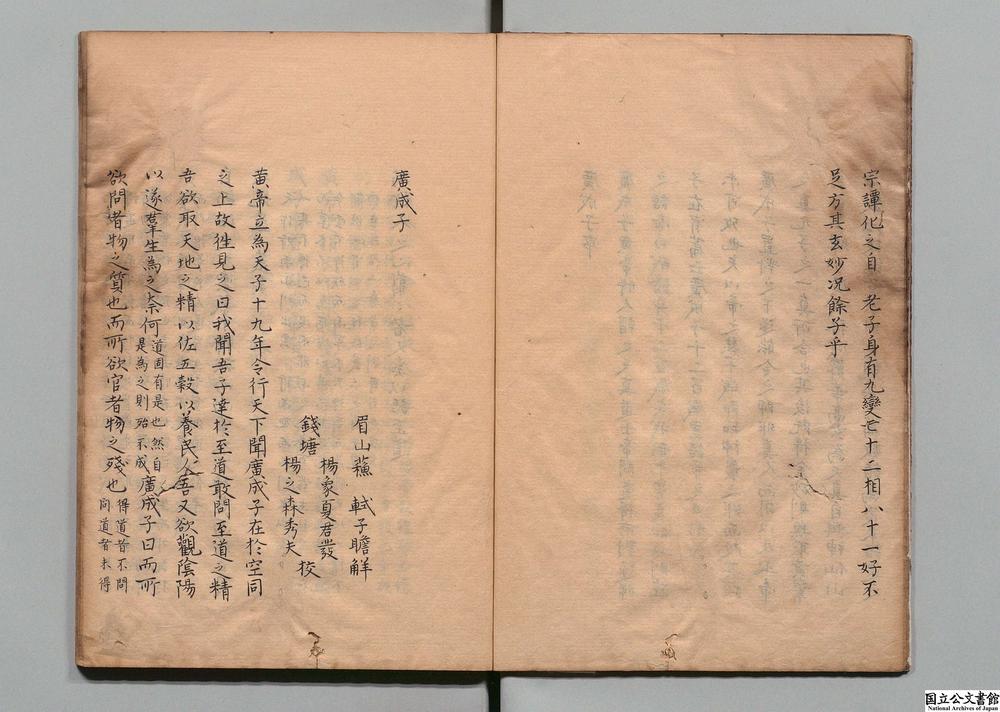 宗譚化之自 老子身有九變七十二相八十一好不
足方其玄妙况餘子乎
廣成子
眉山蘇 軾子瞻解
錢塘 楊象夏君發
楊之森秀夫 校
黄帝立為天子十九年令行天下聞廣成子在於空同
之上故徃見之曰我聞吾子達於至道敢問至道之精
吾欲取天地之精以佐五穀以養民人吾又欲觀陰陽
以遂羣生為之柰何道固有是也然自是為之則殆不成廣成子曰而所
欲問者物之質也而所欲官者物之殘也得道者不問問道者未得
国立公文書館
National Archives of Japan